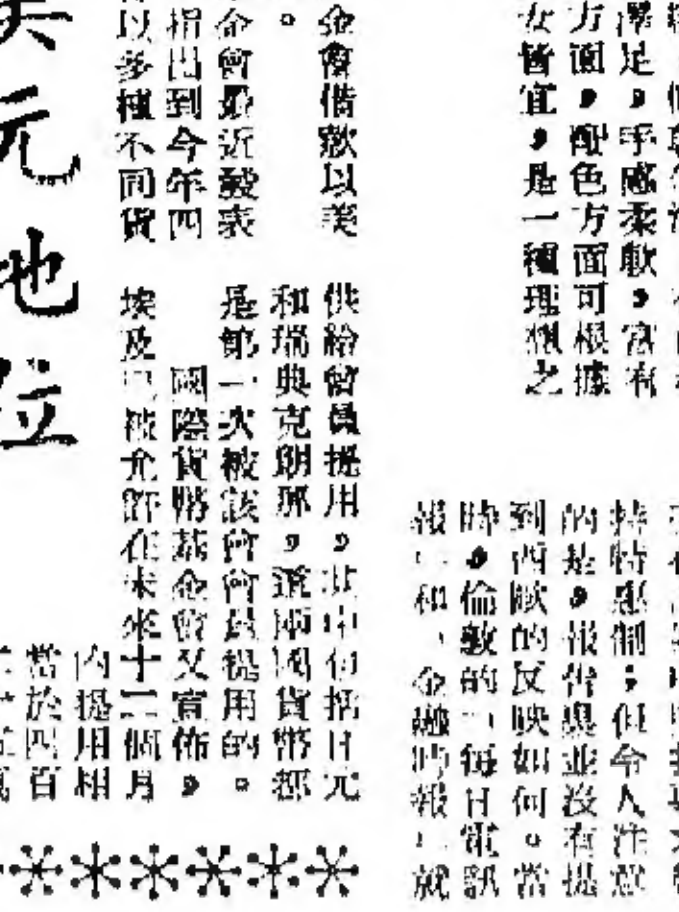 女皆宜，是一種理想之
方面，配色方面可根據
澤足，手感柔軟，富有
持特惠制；但令人注意
的是，報告與並沒有提
到西歐的反映如何。當
時，倫敦的「每日電訊
報」和「金融時報」就
金會借款以美
。
命會最近發表
指出到今年四
以多種不同貨
供給會員提用，其中包括日元
和瑞典克朗那，這兩國貨幣都
是第一次被該會會員提用的。
國際貨幣基金會又宣佈，
埃及已被允許在未來十二個月
內提用相
當於四百
元地位